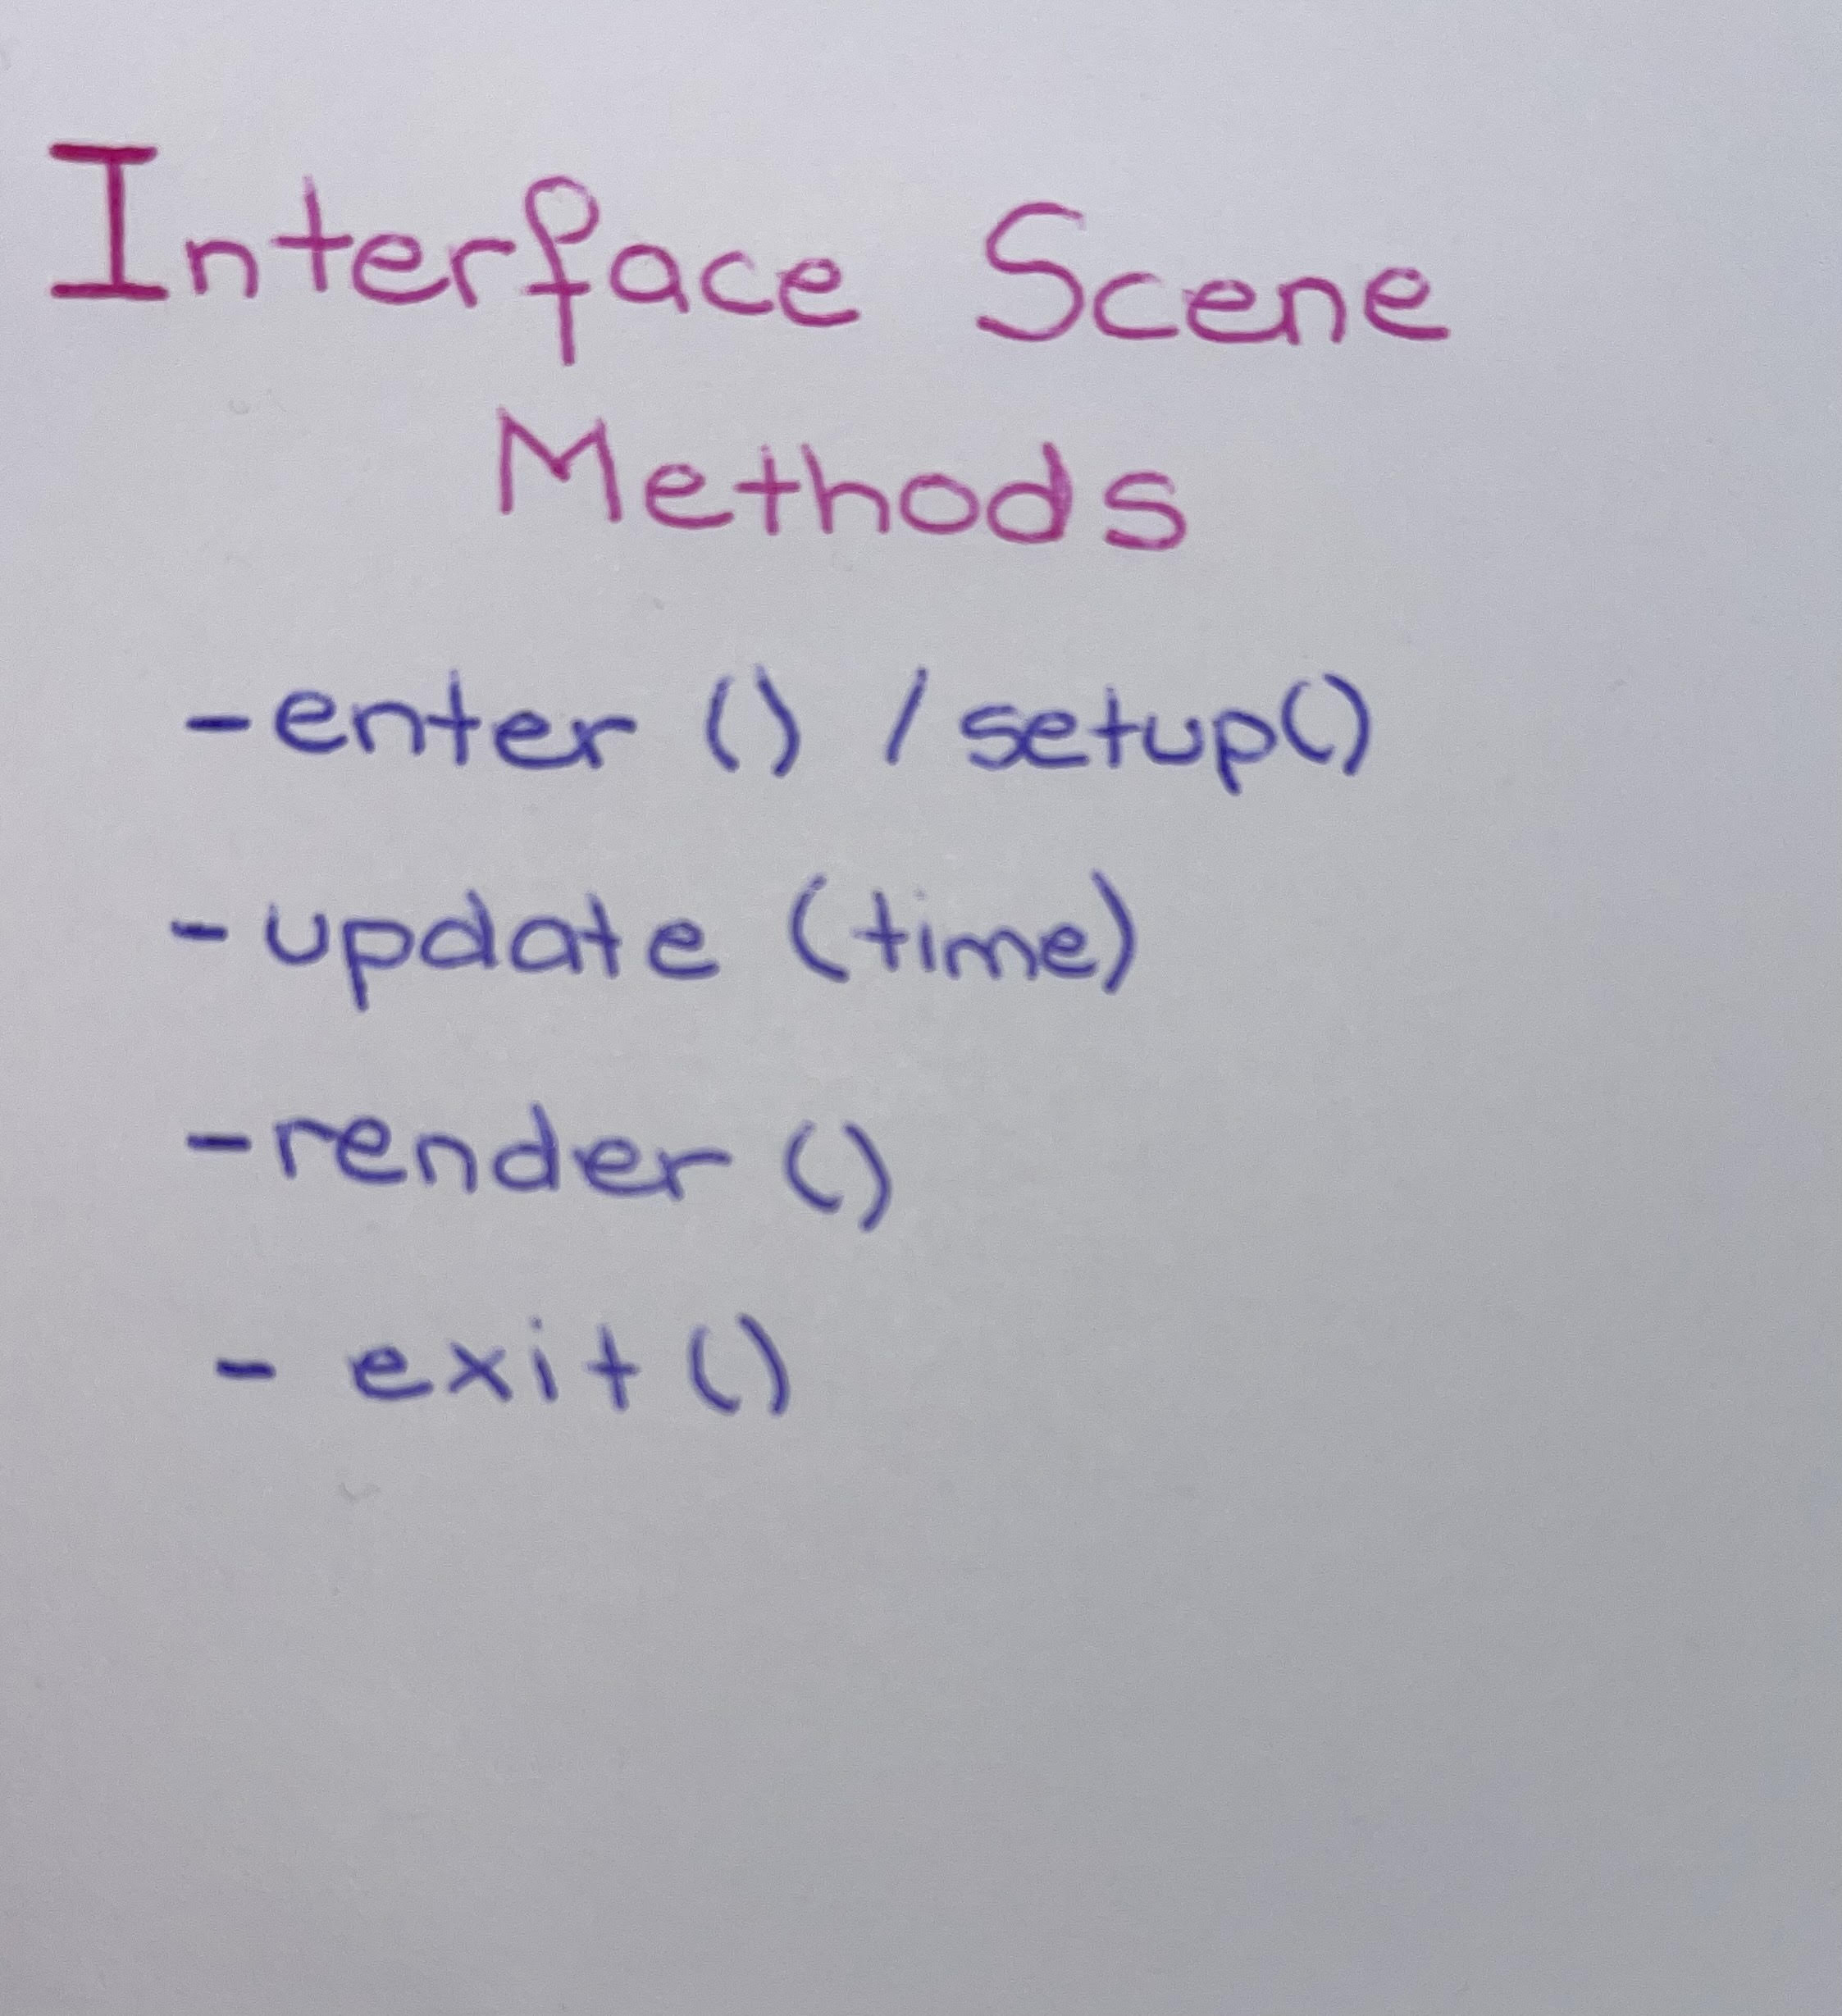 Interface Scene
Methods
-enter () / setup()
- update (time)
-render ()
- exit ()